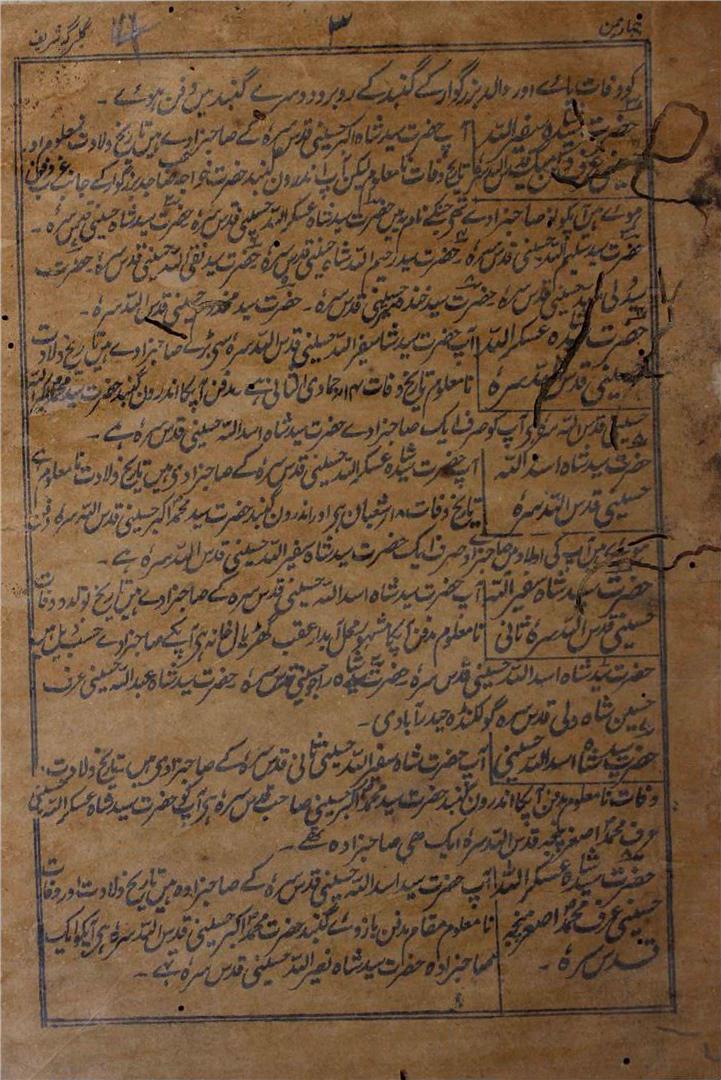 بہار چمن ۳ گلبرگہ شریف
کو وفات پائے اور والد بزرگوار کے گنبد کے روبرو دوسرے گنبد میں دفن ہوئے ۔
حضرت سید شاہ سفیر اللہ آپ حضرت سید شاہ اکبر حسینی قدس سرہ کے صاحبزادے ہیں تاریخ ولادت نامعلوم اور
حسینی عرف قدس اللہ سرہ تاریخ وفات نامعلوم لیکن آپ اندرون گنبد حضرت خواجہ صاحب بزرگوار کے جانب دفن
ہوئے ہیں آپکو صاحبزادے تھے جنکے نام ہیں حضرت سید شاہ عسکر اللہ حسینی قدس سرہ حضرت سید شاہ حسینی قدس سرہ ۔
حضرت سید سلیم اللہ حسینی قدس سرہ ۔ حضرت سید رحیم اللہ شاہ حسینی قدس سرہ حضرت سید نقی اللہ حسینی قدس سرہ ۔ حضرت
سید ولی اللہ حسینی قدس سرہ حضرت سید حسینی قدس سرہ ۔ حضرت سید محمد حسینی قدس اللہ سرہ ۔
حضرت سید شاہ عسکر اللہ آپ حضرت سید شاہ سفیر اللہ حسینی قدس اللہ سرہ کے بڑے صاحبزادے ہیں تاریخ ولادت
حسینی قدس اللہ سرہ نامعلوم تاریخ وفات ۱۴ جمادی الثانی ہے مدفن آپکا اندرون گنبد حضرت سید محمد اکبر
حسینی قدس اللہ سرہ ہے آپ کو صرف ایک صاحبزادے حضرت سید شاہ اسد اللہ حسینی قدس سرہ ہے ۔
حضرت سید شاہ اسد اللہ آپ حضرت سید شاہ عسکر اللہ حسینی قدس سرہ کے صاحبزادے ہیں تاریخ ولادت نامعلوم ہے
حسینی قدس اللہ سرہ تاریخ وفات شعبان ہے اور اندرون گنبد حضرت سید محمد اکبر حسینی قدس اللہ سرہ دفن
ہوئے ہیں آپ کی اولاد میں صاحبزادے صرف ایک حضرت سید شاہ سفیر اللہ حسینی قدس اللہ سرہ ہے ۔
حضرت سید شاہ سفیر اللہ آپ حضرت سید شاہ اسد اللہ حسینی قدس سرہ کے صاحبزادے ہیں تاریخ تولد و وفات
حسینی قدس اللہ سرہ ثانی نامعلوم مدفن آپکا شہر محل آباد عقب گھڑیال خانہ ہے آپکے صاحبزادے حسب ذیل ہیں
حضرت سید شاہ اسد اللہ حسینی قدس سرہ ۔ حضرت سید شاہ راجو حسینی قدس سرہ ۔ حضرت سید شاہ عبد اللہ حسینی عرف
حسین شاہ ولی قدس سرہ گولکنڈہ حیدرآبادی ۔
حضرت سید شاہ اسد اللہ حسینی آپ حضرت شاہ سفیر اللہ حسینی ثانی قدس سرہ کے صاحبزادے ہیں تاریخ ولادت و
وفات نامعلوم مدفن آپکا اندرون گنبد حضرت سید محمد اکبر حسینی صاحب قدس سرہ ہے آپکے حضرت سید شاہ عسکر اللہ حسینی
عرف محمد اصغر قدس اللہ سرہ ایک ہی صاحبزادہ تھے ۔
حضرت سید شاہ عسکر اللہ آپ حضرت سید اسد اللہ حسینی قدس سرہ کے صاحبزادہ ہیں تاریخ ولادت اور وفات
حسینی عرف محمد اصغر نامعلوم مقام مدفن بازوئے گنبد حضرت محمد اکبر حسینی قدس اللہ سرہ ہے آپکو ایک
قدس سرہ ۔ صاحبزادہ حضرت سید شاہ نصیر اللہ حسینی قدس سرہ تھے ۔